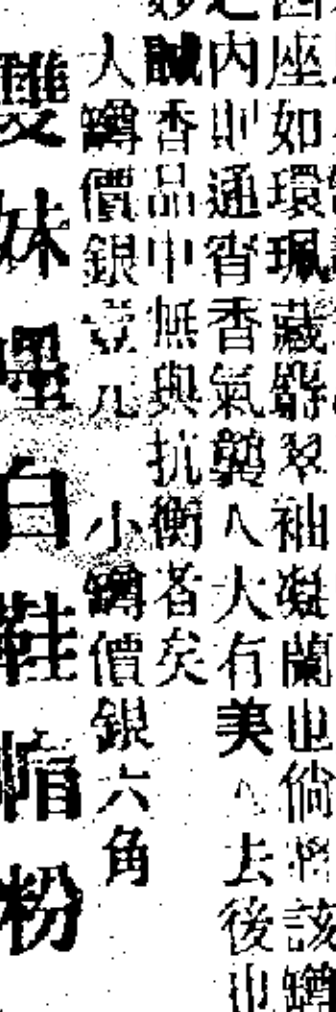 座如環珮藏翳翠袖凝蘭也倘將該罇
之內則通宵香氣襲人大有美人去後也
妙誠香品中無與抗衡者矣
大罇價銀壹元 小罇價銀六角
雙妹嘜白鞋帽粉